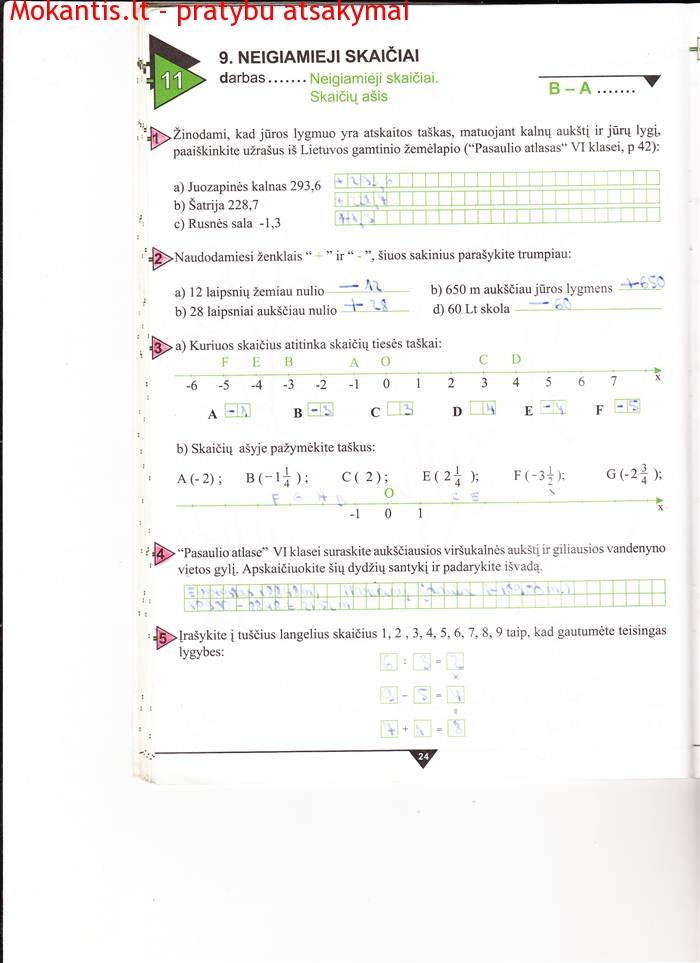 Mokantis.lt - pratybu atsakymai
11
9. NEIGIAMIEJI SKAIČIAI
darbas ....... Neigiamieji skaičiai.
Skaičių ašis
B – A .......
1 Žinodami, kad jūros lygmuo yra atskaitos taškas, matuojant kalnų aukštį ir jūrų lygį,
paaiškinkite užrašus iš Lietuvos gamtinio žemėlapio (“Pasaulio atlasas“ VI klasei, p 42):
a) Juozapinės kalnas 293,6
b) Šatrija 228,7
c) Rusnės sala -1,3
2 Naudodamiesi ženklais “ + ” ir “ - ”, šiuos sakinius parašykite trumpiau:
a) 12 laipsnių žemiau nulio – 12
b) 650 m aukščiau jūros lygmens +650
b) 28 laipsniai aukščiau nulio + 28
d) 60 Lt skola – 60
3 a) Kuriuos skaičius atitinka skaičių tiesės taškai:
F E B A O C D
-6 -5 -4 -3 -2 -1 0 1 2 3 4 5 6 7 x
A -1 B -3 C 3 D 4 E -4 F -5
b) Skaičių ašyje pažymėkite taškus:
A (- 2) ; B (−1 1/4 ) ; C ( 2 ) ; E ( 2 1/4 ); F (−3 1/2 ); G (-2 3/4 );
F G A B O C E
-1 0 1 x
4 “Pasaulio atlase” VI klasei suraskite aukščiausios viršukalnės aukštį ir giliausios vandenyno
vietos gylį. Apskaičiuokite šių dydžių santykį ir padarykite išvadą.
5 Įrašykite į tuščius langelius skaičius 1, 2 , 3, 4, 5, 6, 7, 8, 9 taip, kad gautumėte teisingas
lygybes:
6 : 3 = 2
×
9 – 5 = 4
=
7 + 1 = 8
24